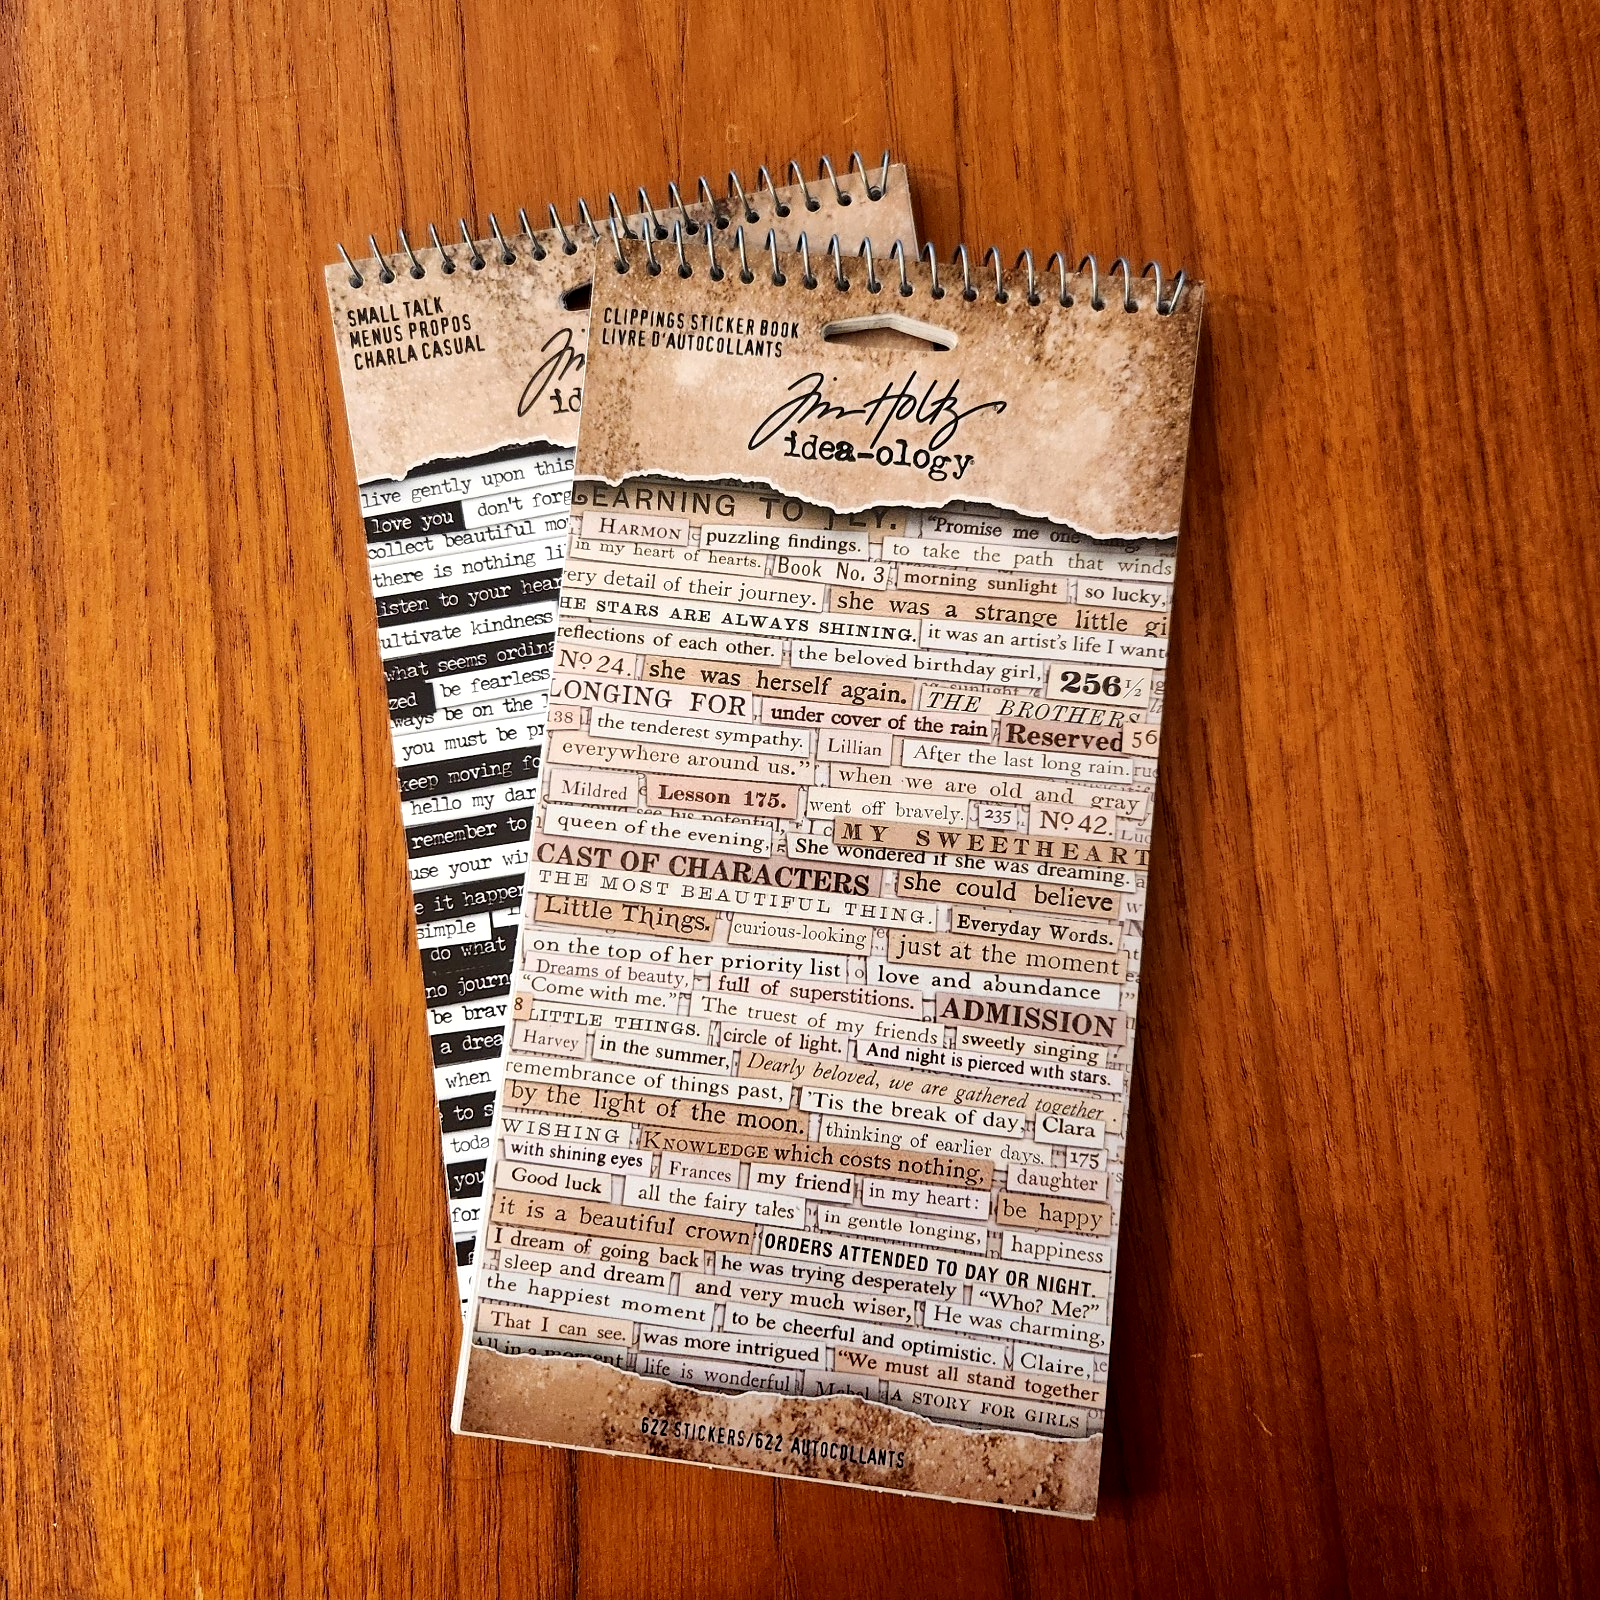 SMALL TALK
MENUS PROPOS
CHARLA CASUAL
Tim
id
live gently upon this
love you don't forg
collect beautiful mo
there is nothing li
listen to your hear
ultivate kindness
what seems ordina
zed be fearless
ways be on the l
you must be pr
keep moving fo
hello my dar
remember to
use your wi
e it happen
simple
do what
no journ
be brav
a drea
when
to s
toda
you
for
CLIPPINGS STICKER BOOK
LIVRE D'AUTOCOLLANTS
Tim Holtz
idea-ology
LEARNING TO FLY.
"Promise me one thing,
HARMON puzzling findings. to take the path that winds
in my heart of hearts. Book No. 3 morning sunlight so lucky,
ery detail of their journey. she was a strange little gi
HE STARS ARE ALWAYS SHINING. it was an artist's life I want
reflections of each other. the beloved birthday girl, 256 1/2
No 24. she was herself again. THE BROTHERS
LONGING FOR under cover of the rain Reserved 56
38 the tenderest sympathy. Lillian After the last long rain.
everywhere around us." when we are old and gray
Mildred Lesson 175. went off bravely. 235 No 42.
see his potential,
queen of the evening, MY SWEETHEART
She wondered if she was dreaming.
CAST OF CHARACTERS she could believe
THE MOST BEAUTIFUL THING. Everyday Words.
Little Things. curious-looking just at the moment
on the top of her priority list love and abundance
Dreams of beauty, full of superstitions. ADMISSION
"Come with me." The truest of my friends sweetly singing
8 LITTLE THINGS. circle of light. And night is pierced with stars.
Harvey in the summer, Dearly beloved, we are gathered together
remembrance of things past, 'Tis the break of day, Clara
by the light of the moon. thinking of earlier days. 175
WISHING KNOWLEDGE which costs nothing, daughter
with shining eyes Frances my friend in my heart: be happy
Good luck all the fairy tales in gentle longing, happiness
it is a beautiful crown" ORDERS ATTENDED TO DAY OR NIGHT.
I dream of going back he was trying desperately "Who? Me?"
sleep and dream and very much wiser, He was charming,
the happiest moment to be cheerful and optimistic. Claire,
That I can see. was more intrigued "We must all stand together
All in a moment life is wonderful Mabel A STORY FOR GIRLS
622 STICKERS/622 AUTOCOLLANTS